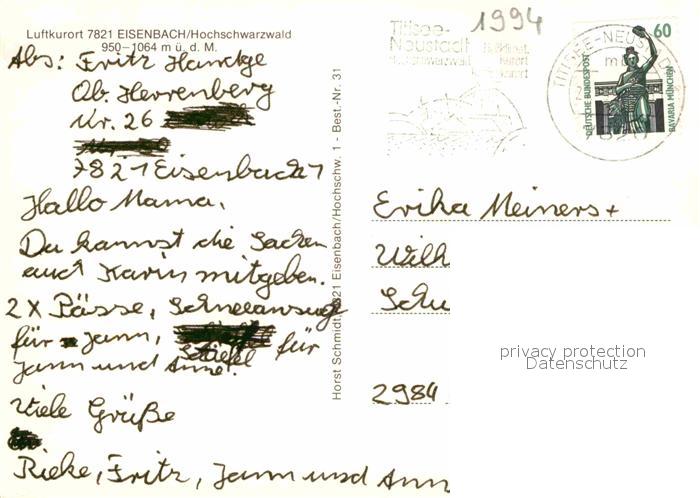 Luftkurort 7821 EISENBACH/Hochschwarzwald
950–1064 m ü. d. M.
Abs: Fritz
Ob. Herrenberg
Nr. 26
7821 Eisenbach 1
Hallo Mama,
Du kannst die Sachen
auch Karin mitgeben.
2 X Pässe, Schneeanzug
für Jann, Stiefel für
Jann und Anne.
Viele Grüße
Rieke, Fritz, Jann und Ann
Horst Schmidt, 7821 Eisenbach/Hochschw. 1 - Best.-Nr. 31
1994
Titisee-
Neustadt
Hochschwarzwald
kurort
kurort
TITISEE-NEUSTADT
60
DEUTSCHE BUNDESPOST
BAVARIA MÜNCHEN
Erika Meiners +
Wilh
Schu
2984
privacy protection
Datenschutz